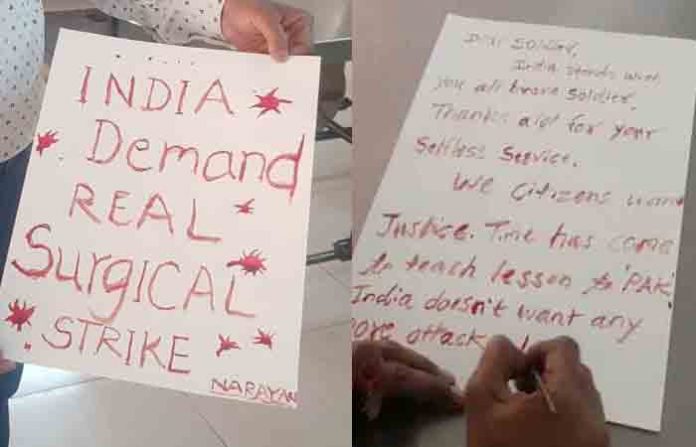 INDIA
Demand
REAL
SurgICAL
STRIKE
NARAYAN
Dear Soldier,
India stands with
you all brave soldier.
Thanks alot for your
Selfless Service.
We Citizens want
Justice. Time has come
to teach lesson to 'PAK'.
India doesn't want any
more attack